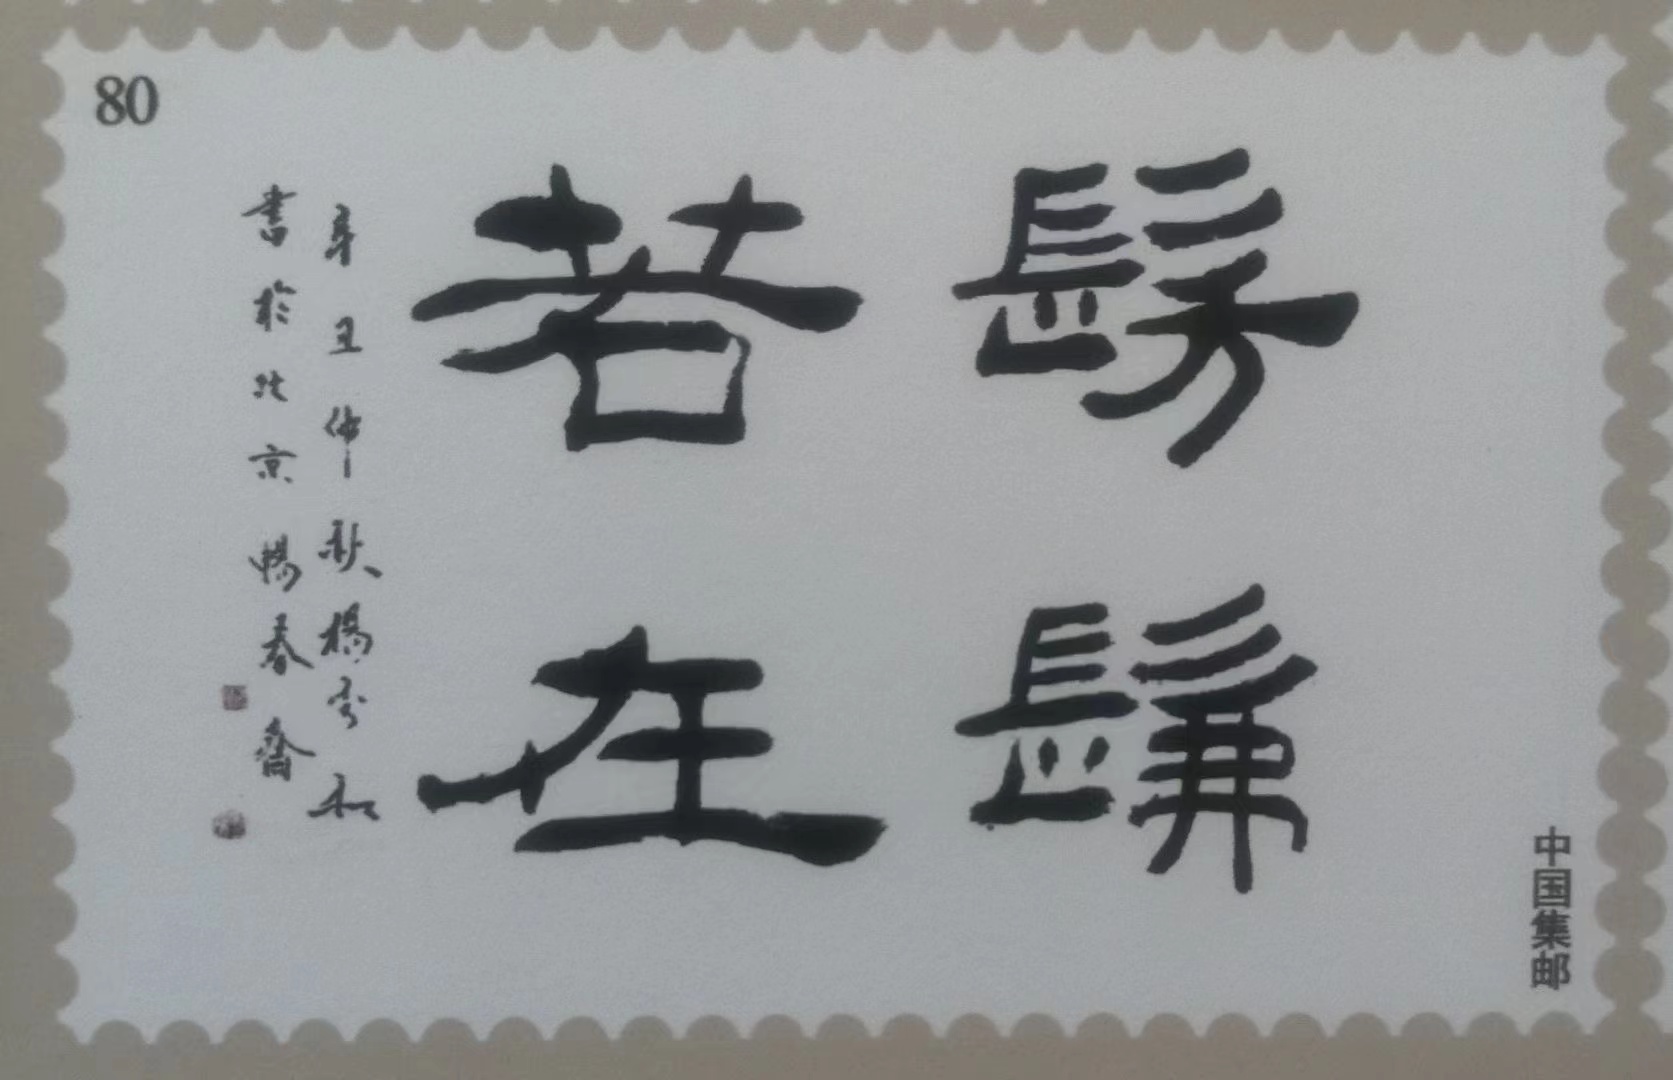 80
髣髴
若在
辛丑仲秋楊
書於北京暢春齋
中国集邮